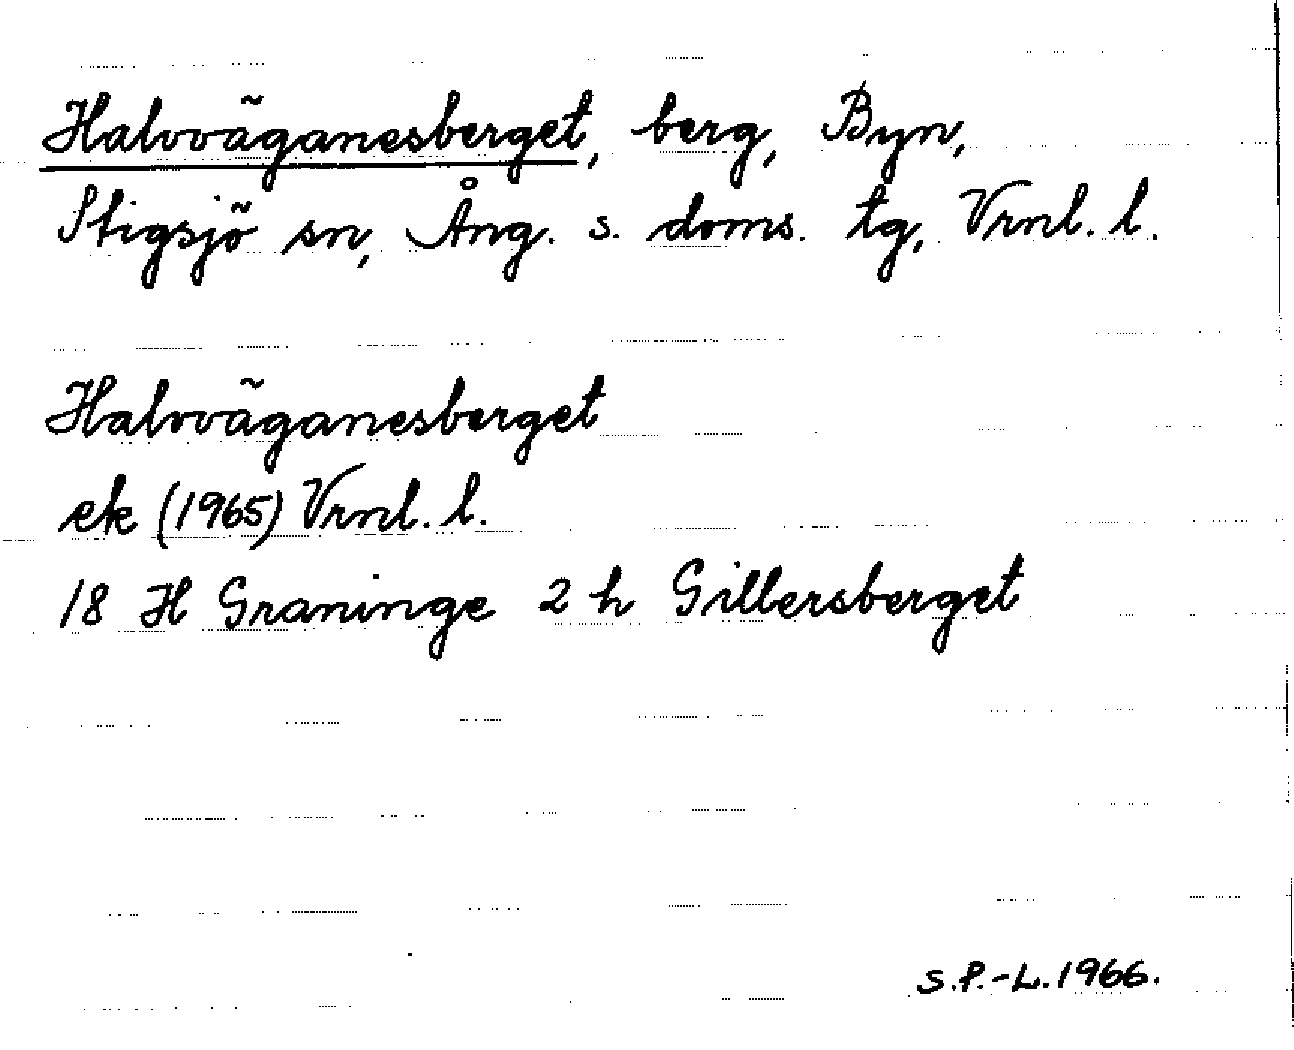 Halvväganesberget, berg, Byn,
Stigsjö sn, Ång. s. doms. tg, Vrnl. l.
Halvväganesberget
ek (1965) Vrnl. l.
18 H Graninge 2 h Gillersberget
S.P.-L. 1966.